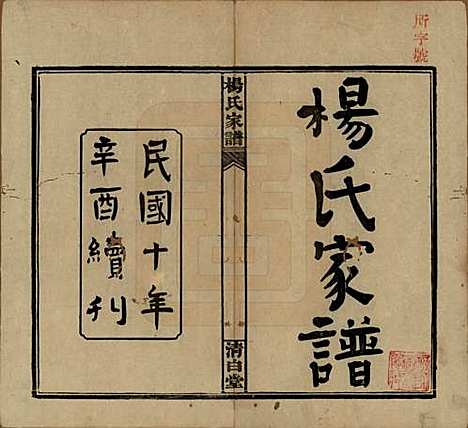 所字號
楊氏家譜
楊氏家譜
清白堂
民國十年
辛酉續刊